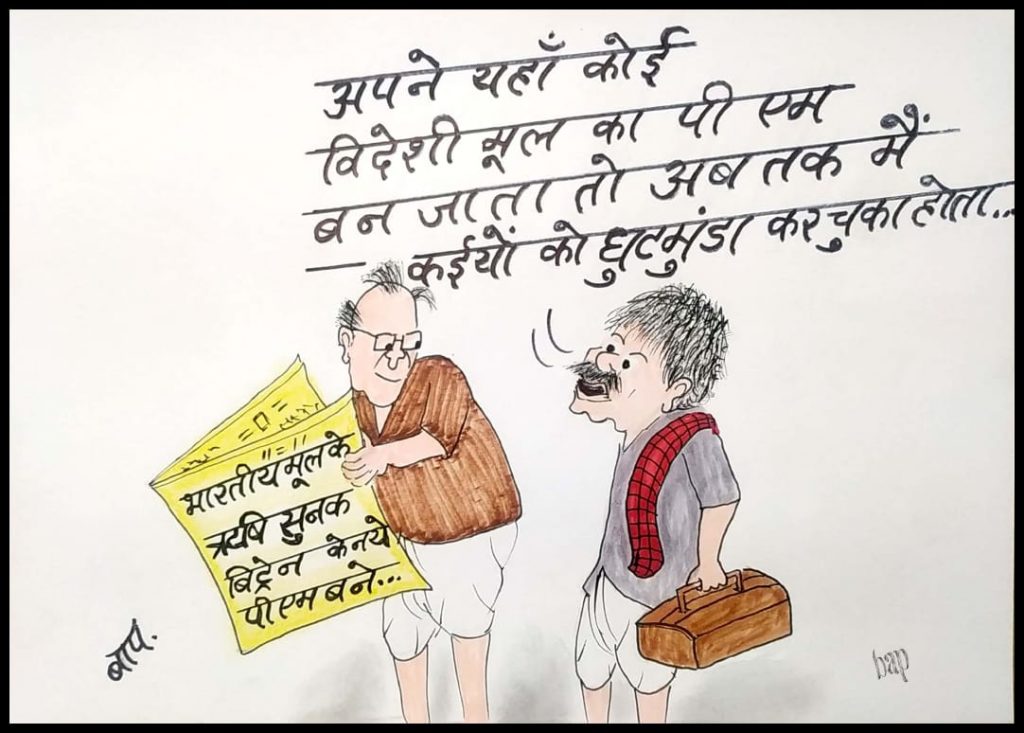 अपने यहाँ कोई
विदेशी मूल का पी एम
बन जाता तो अब तक मैं
कईयों को घुटमुंडा कर चुका होता...
भारतीय मूल के
ऋषि सुनक
बिट्रेन के नये
पी एम बने...
बाप.
bap